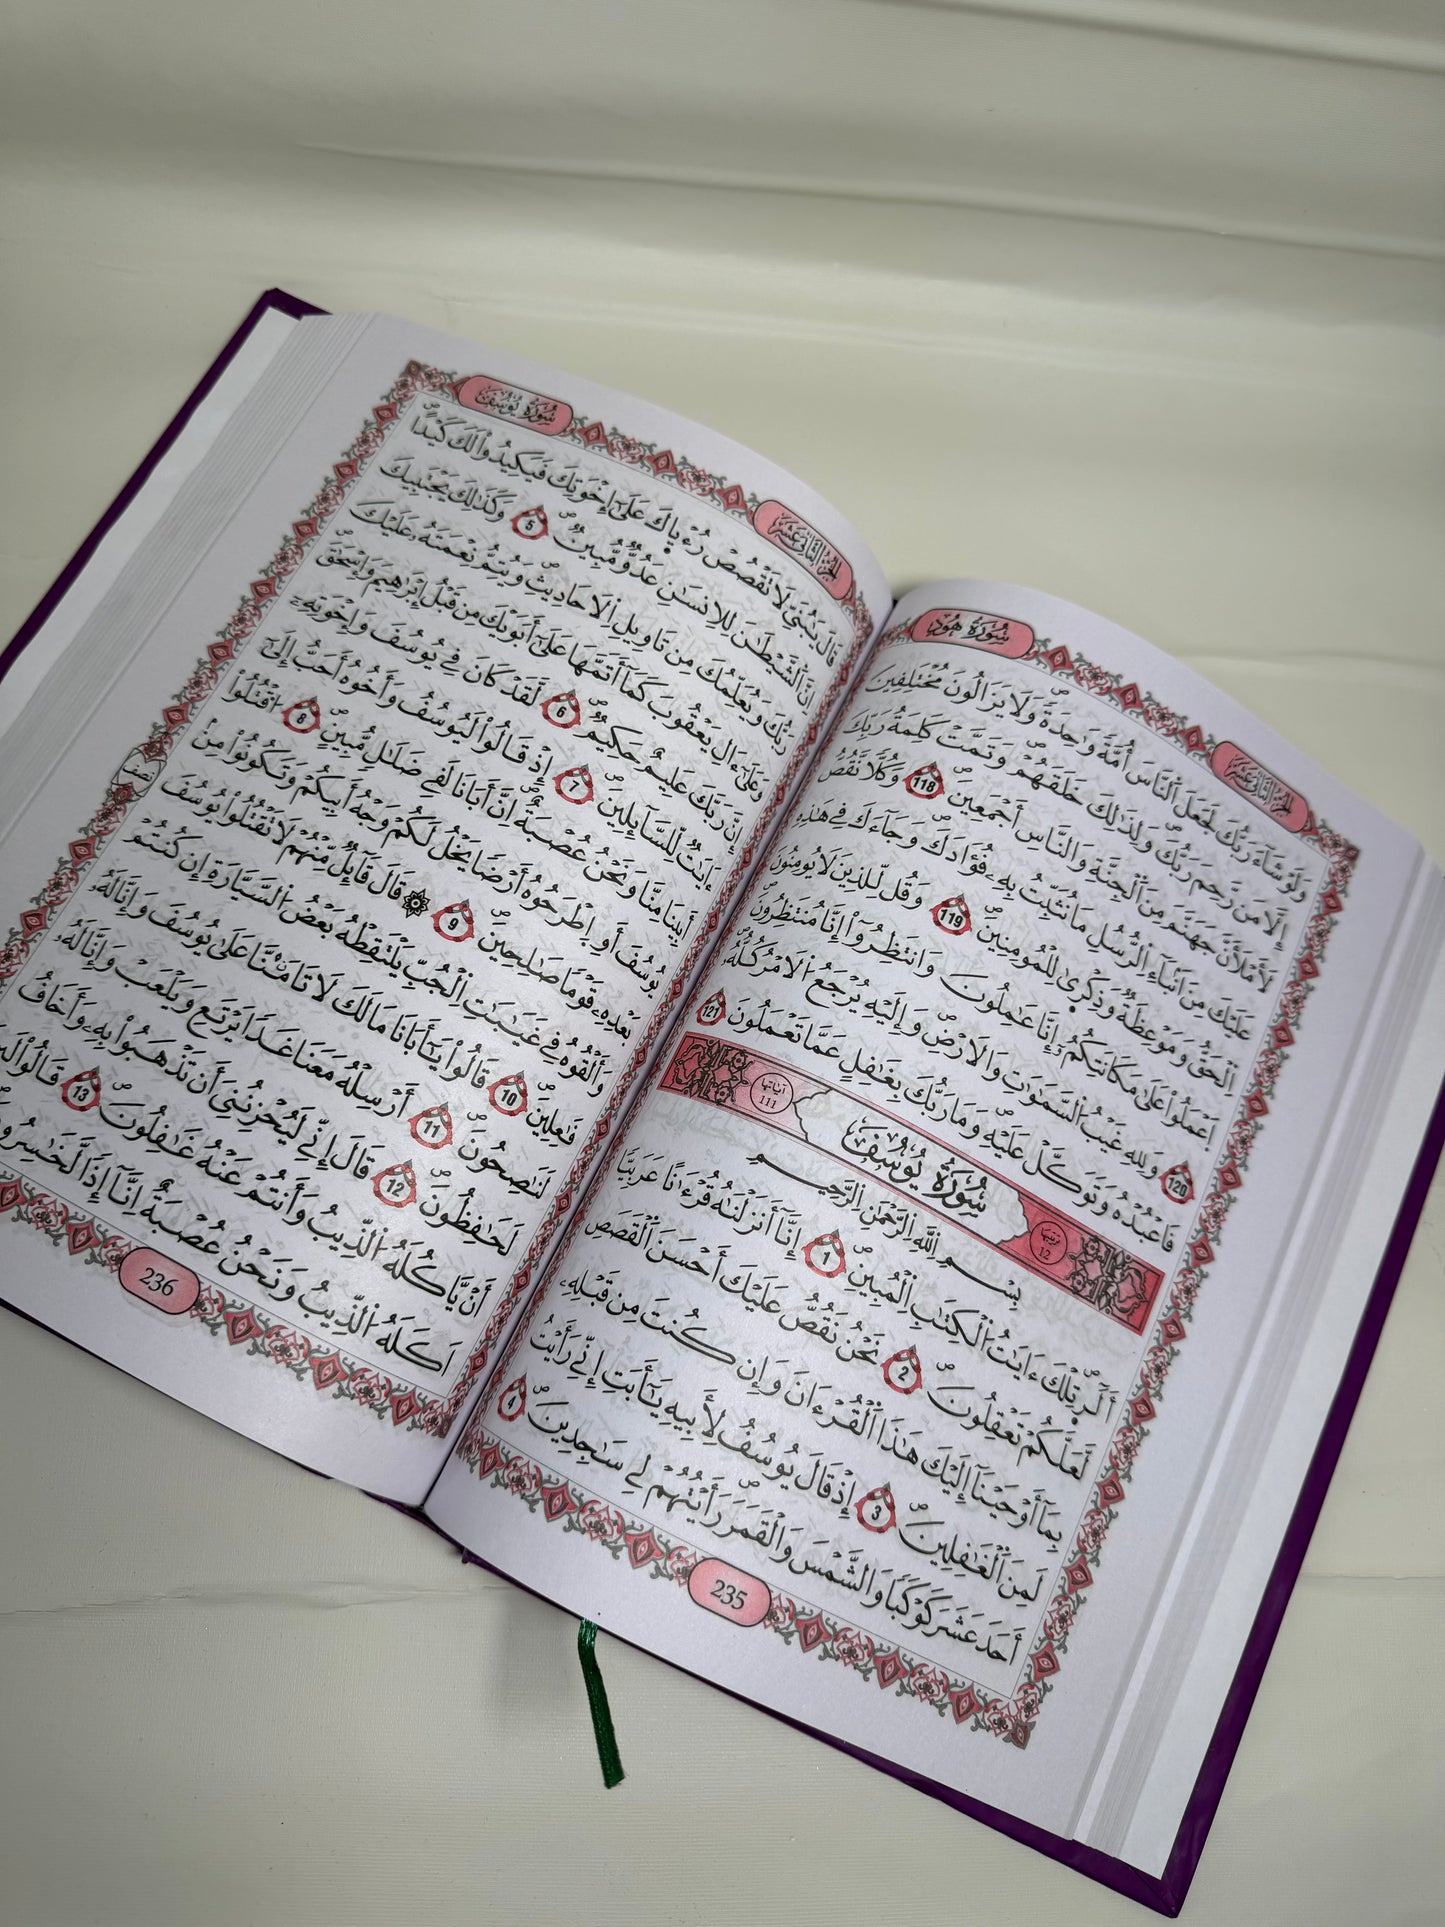 سُورَةُ هُودٍ
الجزء الثاني عشر
وَلَوْ شَآءَ رَبُّكَ لَجَعَلَ اَ۬لنَّاسَ أُمَّةٗ وَٰحِدَةٗۖ وَلَا يَزَالُونَ مُخْتَلِفِينَ
إِلَّا مَن رَّحِمَ رَبُّكَۖ وَلِذَٰلِكَ خَلَقَهُمْۖ وَتَمَّتْ كَلِمَةُ رَبِّكَ
لَأَمْلَأَنَّ جَهَنَّمَ مِنَ اَ۬لْجِنَّةِ وَالنَّاسِ أَجْمَعِينَۖ 118 وَكُلّٗا نَّقُصُّ
عَلَيْكَ مِنْ أَنۢبَآءِ اِ۬لرُّسُلِ مَا نُثَبِّتُ بِهِۦ فُؤَادَكَۖ وَجَآءَكَ فِي هَٰذِهِ
اِ۬لْحَقُّ وَمَوْعِظَةٞ وَذِكْر۪ىٰ لِلْمُومِنِينَۖ 119 وَقُل لِّلذِينَ لَا يُومِنُونَ
اَ۪عْمَلُواْ عَلَىٰ مَكَانَتِكُمُۥٓ إِنَّا عَٰمِلُونَ وَانتَظِرُوٓاْ إِنَّا مُنتَظِرُونَۖ
120 وَلِلهِ غَيْبُ اُ۬لسَّمَٰوَٰتِ وَالَارْضِۖ وَإِلَيْهِ يُرْجَعُ اُ۬لَامْرُ كُلُّهُۥ
فَاعْبُدْهُ وَتَوَكَّلْ عَلَيْهِۖ وَمَا رَبُّكَ بِغَٰفِلٍ عَمَّا تَعْمَلُونَۖ 121
ترتيبها 12
سُورَةُ يُوسُفَ
آياتها 111
بِسْمِ اِ۬للَّهِ اِ۬لرَّحْمَٰنِ اِ۬لرَّحِيمِ
أَلَٓر۪ۖ تِلْكَ ءَايَٰتُ اُ۬لْكِتَٰبِ اِ۬لْمُبِينِۖ 1 إِنَّآ أَنزَلْنَٰهُ قُرْءَٰناً عَرَبِيّٗا
لَّعَلَّكُمْ تَعْقِلُونَۖ 2 نَحْنُ نَقُصُّ عَلَيْكَ أَحْسَنَ اَ۬لْقَصَصِ
بِمَآ أَوْحَيْنَآ إِلَيْكَ هَٰذَا اَ۬لْقُرْءَانَ وَإِن كُنتَ مِن قَبْلِهِۦ
لَمِنَ اَ۬لْغَٰفِلِينَۖ 3 إِذْ قَالَ يُوسُفُ لِأَبِيهِ يَٰٓأَبَتِ إِنِّي رَأَيْتُ
أَحَدَ عَشَرَ كَوْكَباٗ وَالشَّمْسَ وَالْقَمَرَ رَأَيْتُهُمْ لِي سَٰجِدِينَۖ 4
235
سُورَةُ يُوسُفَ
الجزء الثاني عشر
قَالَ يَٰبُنَيِّ لَا تَقْصُصْ رُءْي۪اكَ عَلَىٰٓ إِخْوَتِكَ فَيَكِيدُواْ لَكَ كَيْداًۖ
اِنَّ اَ۬لشَّيْطَٰنَ لِلِانسَٰنِ عَدُوّٞ مُّبِينٞۖ 5 وَكَذَٰلِكَ يَجْتَبِيكَ
رَبُّكَ وَيُعَلِّمُكَ مِن تَاوِيلِ اِ۬لَاحَادِيثِۖ وَيُتِمُّ نِعْمَتَهُۥ عَلَيْكَ
وَعَلَىٰٓ ءَالِ يَعْقُوبَ كَمَآ أَتَمَّهَا عَلَىٰٓ أَبَوَيْكَ مِن قَبْلُ إِبْرَٰهِيمَ وَإِسْحَٰقَۖ
إِنَّ رَبَّكَ عَلِيمٌ حَكِيمٞۖ 6 لَّقَدْ كَانَ فِي يُوسُفَ وَإِخْوَتِهِۦٓ
ءَايَٰتٞ لِّلسَّآئِلِينَۖ 7 إِذْ قَالُواْ لَيُوسُفُ وَأَخُوهُ أَحَبُّ إِلَىٰٓ
أَبِينَا مِنَّا وَنَحْنُ عُصْبَةٌۖ اِنَّ أَبَانَا لَفِي ضَلَٰلٖ مُّبِينٍۖ 8 اُ۟قْتُلُواْ
يُوسُفَ أَوِ اِ۪طْرَحُوهُ أَرْضاٗ يَخْلُ لَكُمْ وَجْهُ أَبِيكُمْ وَتَكُونُواْ مِنۢ
بَعْدِهِۦ قَوْماٗ صَٰلِحِينَۖ 9 ۞ قَالَ قَآئِلٞ مِّنْهُمْ لَا تَقْتُلُواْ يُوسُفَ
نصف
وَأَلْقُوهُ فِي غَيَٰبَٰتِ اِ۬لْجُبِّ يَلْتَقِطْهُ بَعْضُ اُ۬لسَّيَّارَةِ إِن كُنتُمْ
فَٰعِلِينَۖ 10 قَالُواْ يَٰٓأَبَانَا مَا لَكَ لَا تَامَ۬نَّا عَلَىٰ يُوسُفَ وَإِنَّا لَهُۥ
لَنَٰصِحُونَۖ 11 أَرْسِلْهُ مَعَنَا غَداٗ يَرْتَعِ وَيَلْعَبْ وَإِنَّا لَهُۥ
لَحَٰفِظُونَۖ 12 قَالَ إِنِّي لَيُحْزِنُنِيَ أَن تَذْهَبُواْ بِهِۦ وَأَخَافُ
أَنْ يَّاكُلَهُ اُ۬لذِّيبُ وَأَنتُمْ عَنْهُ غَٰفِلُونَۖ 13 قَالُواْ
اَكَلَهُ اُ۬لذِّيبُ وَنَحْنُ عُصْبَةٌ اِنَّآ إِذاٗ لَّخَٰسِرُونَ
236